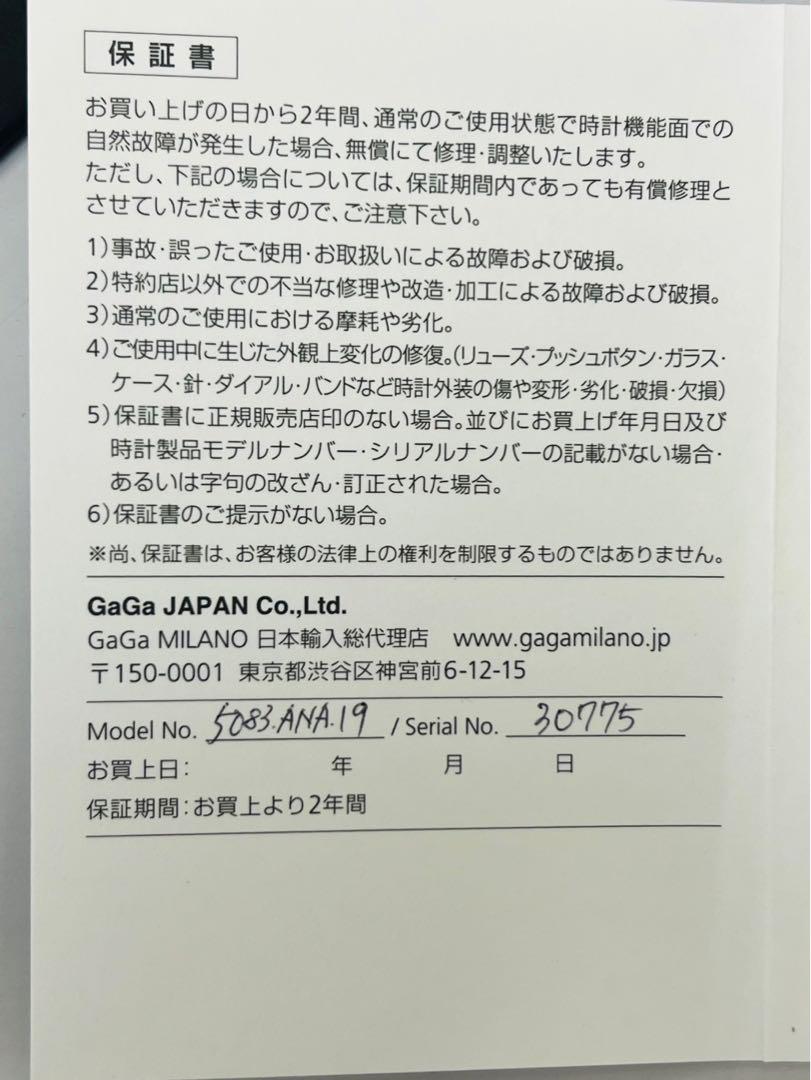 保証書
お買い上げの日から2年間、通常のご使用状態で時計機能面での
自然故障が発生した場合、無償にて修理・調整いたします。
ただし、下記の場合については、保証期間内であっても有償修理と
させていただきますので、ご注意下さい。
1)事故・誤ったご使用・お取扱いによる故障および破損。
2)特約店以外での不当な修理や改造・加工による故障および破損。
3)通常のご使用における摩耗や劣化。
4)ご使用中に生じた外観上変化の修復。(リューズ・プッシュボタン・ガラス・
ケース・針・ダイアル・バンドなど時計外装の傷や変形・劣化・破損・欠損)
5)保証書に正規販売店印のない場合。並びにお買上げ年月日及び
時計製品モデルナンバー・シリアルナンバーの記載がない場合・
あるいは字句の改ざん・訂正された場合。
6)保証書のご提示がない場合。
※尚、保証書は、お客様の法律上の権利を制限するものではありません。
GaGa JAPAN Co.,Ltd.
GaGa MILANO 日本輸入総代理店 www.gagamilano.jp
〒150-0001 東京都渋谷区神宮前6-12-15
Model No. 5083.ANA.19 / Serial No. 30775
お買上日: 年 月 日
保証期間:お買上より2年間